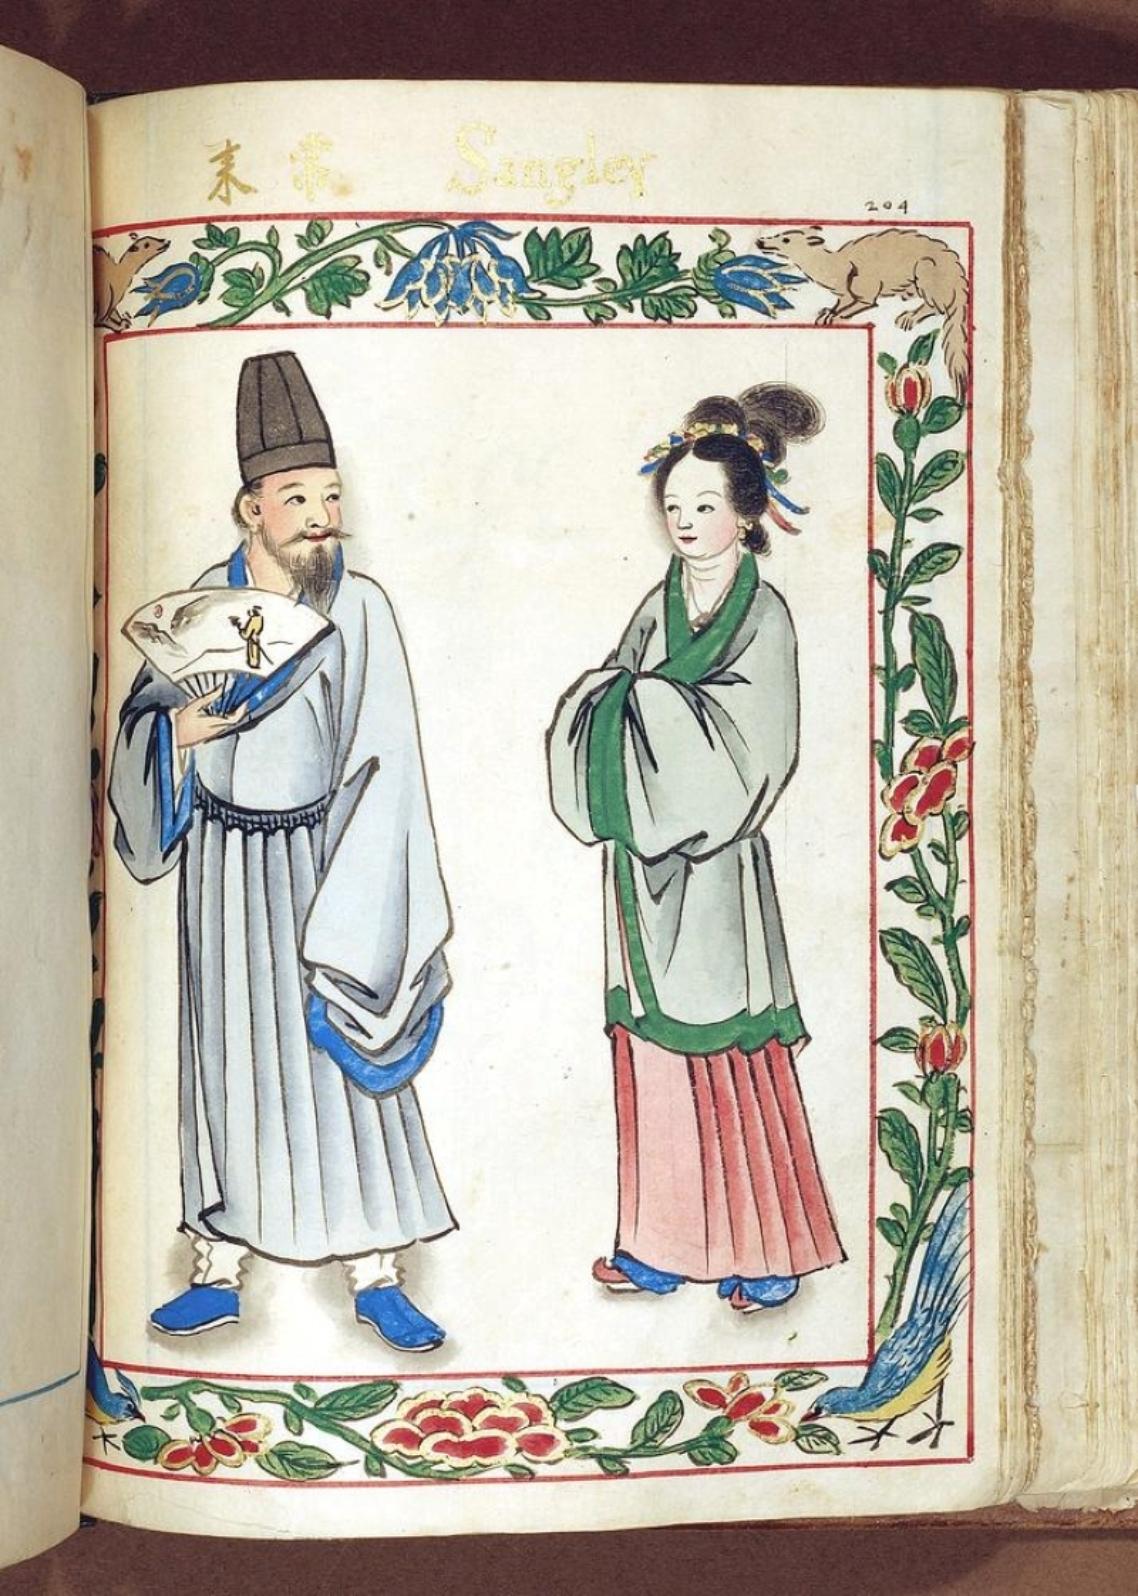 常来 Sangley
204